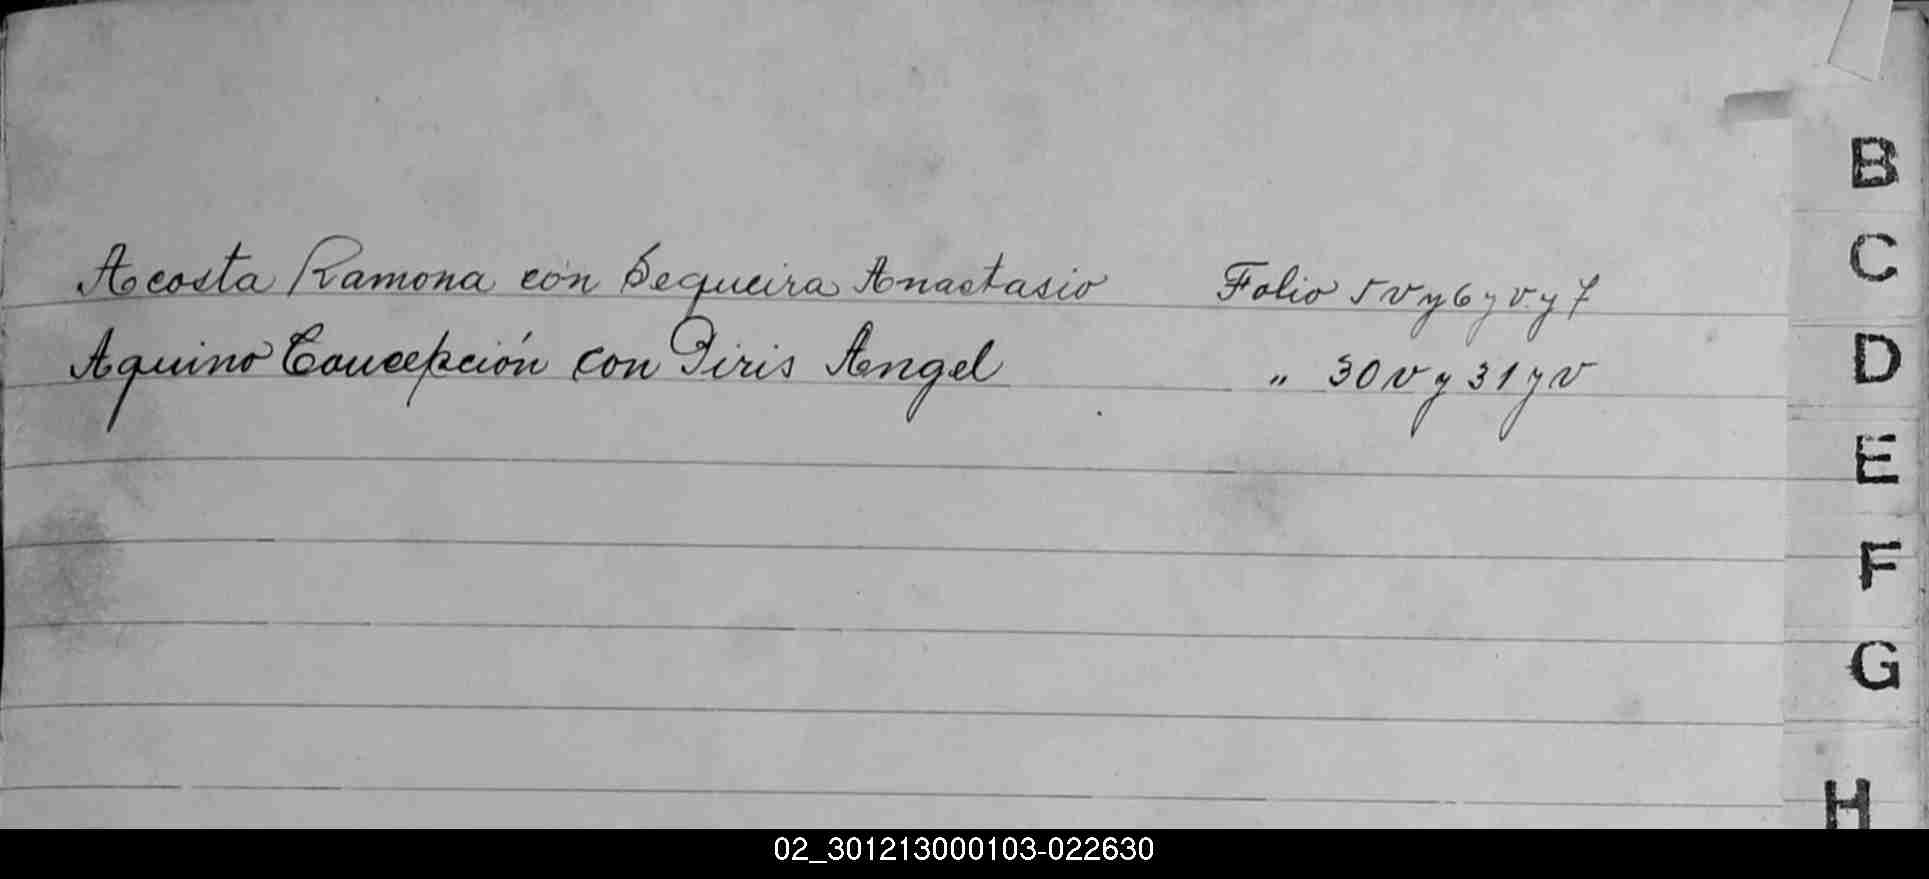 Acosta Ramona con Sequeira Anastasio Folio 5 v y 6 y v y 7
Aquino Concepción con Piris Angel " 30 v y 31 y v
B
C
D
E
F
G
H
02_301213000103-022630